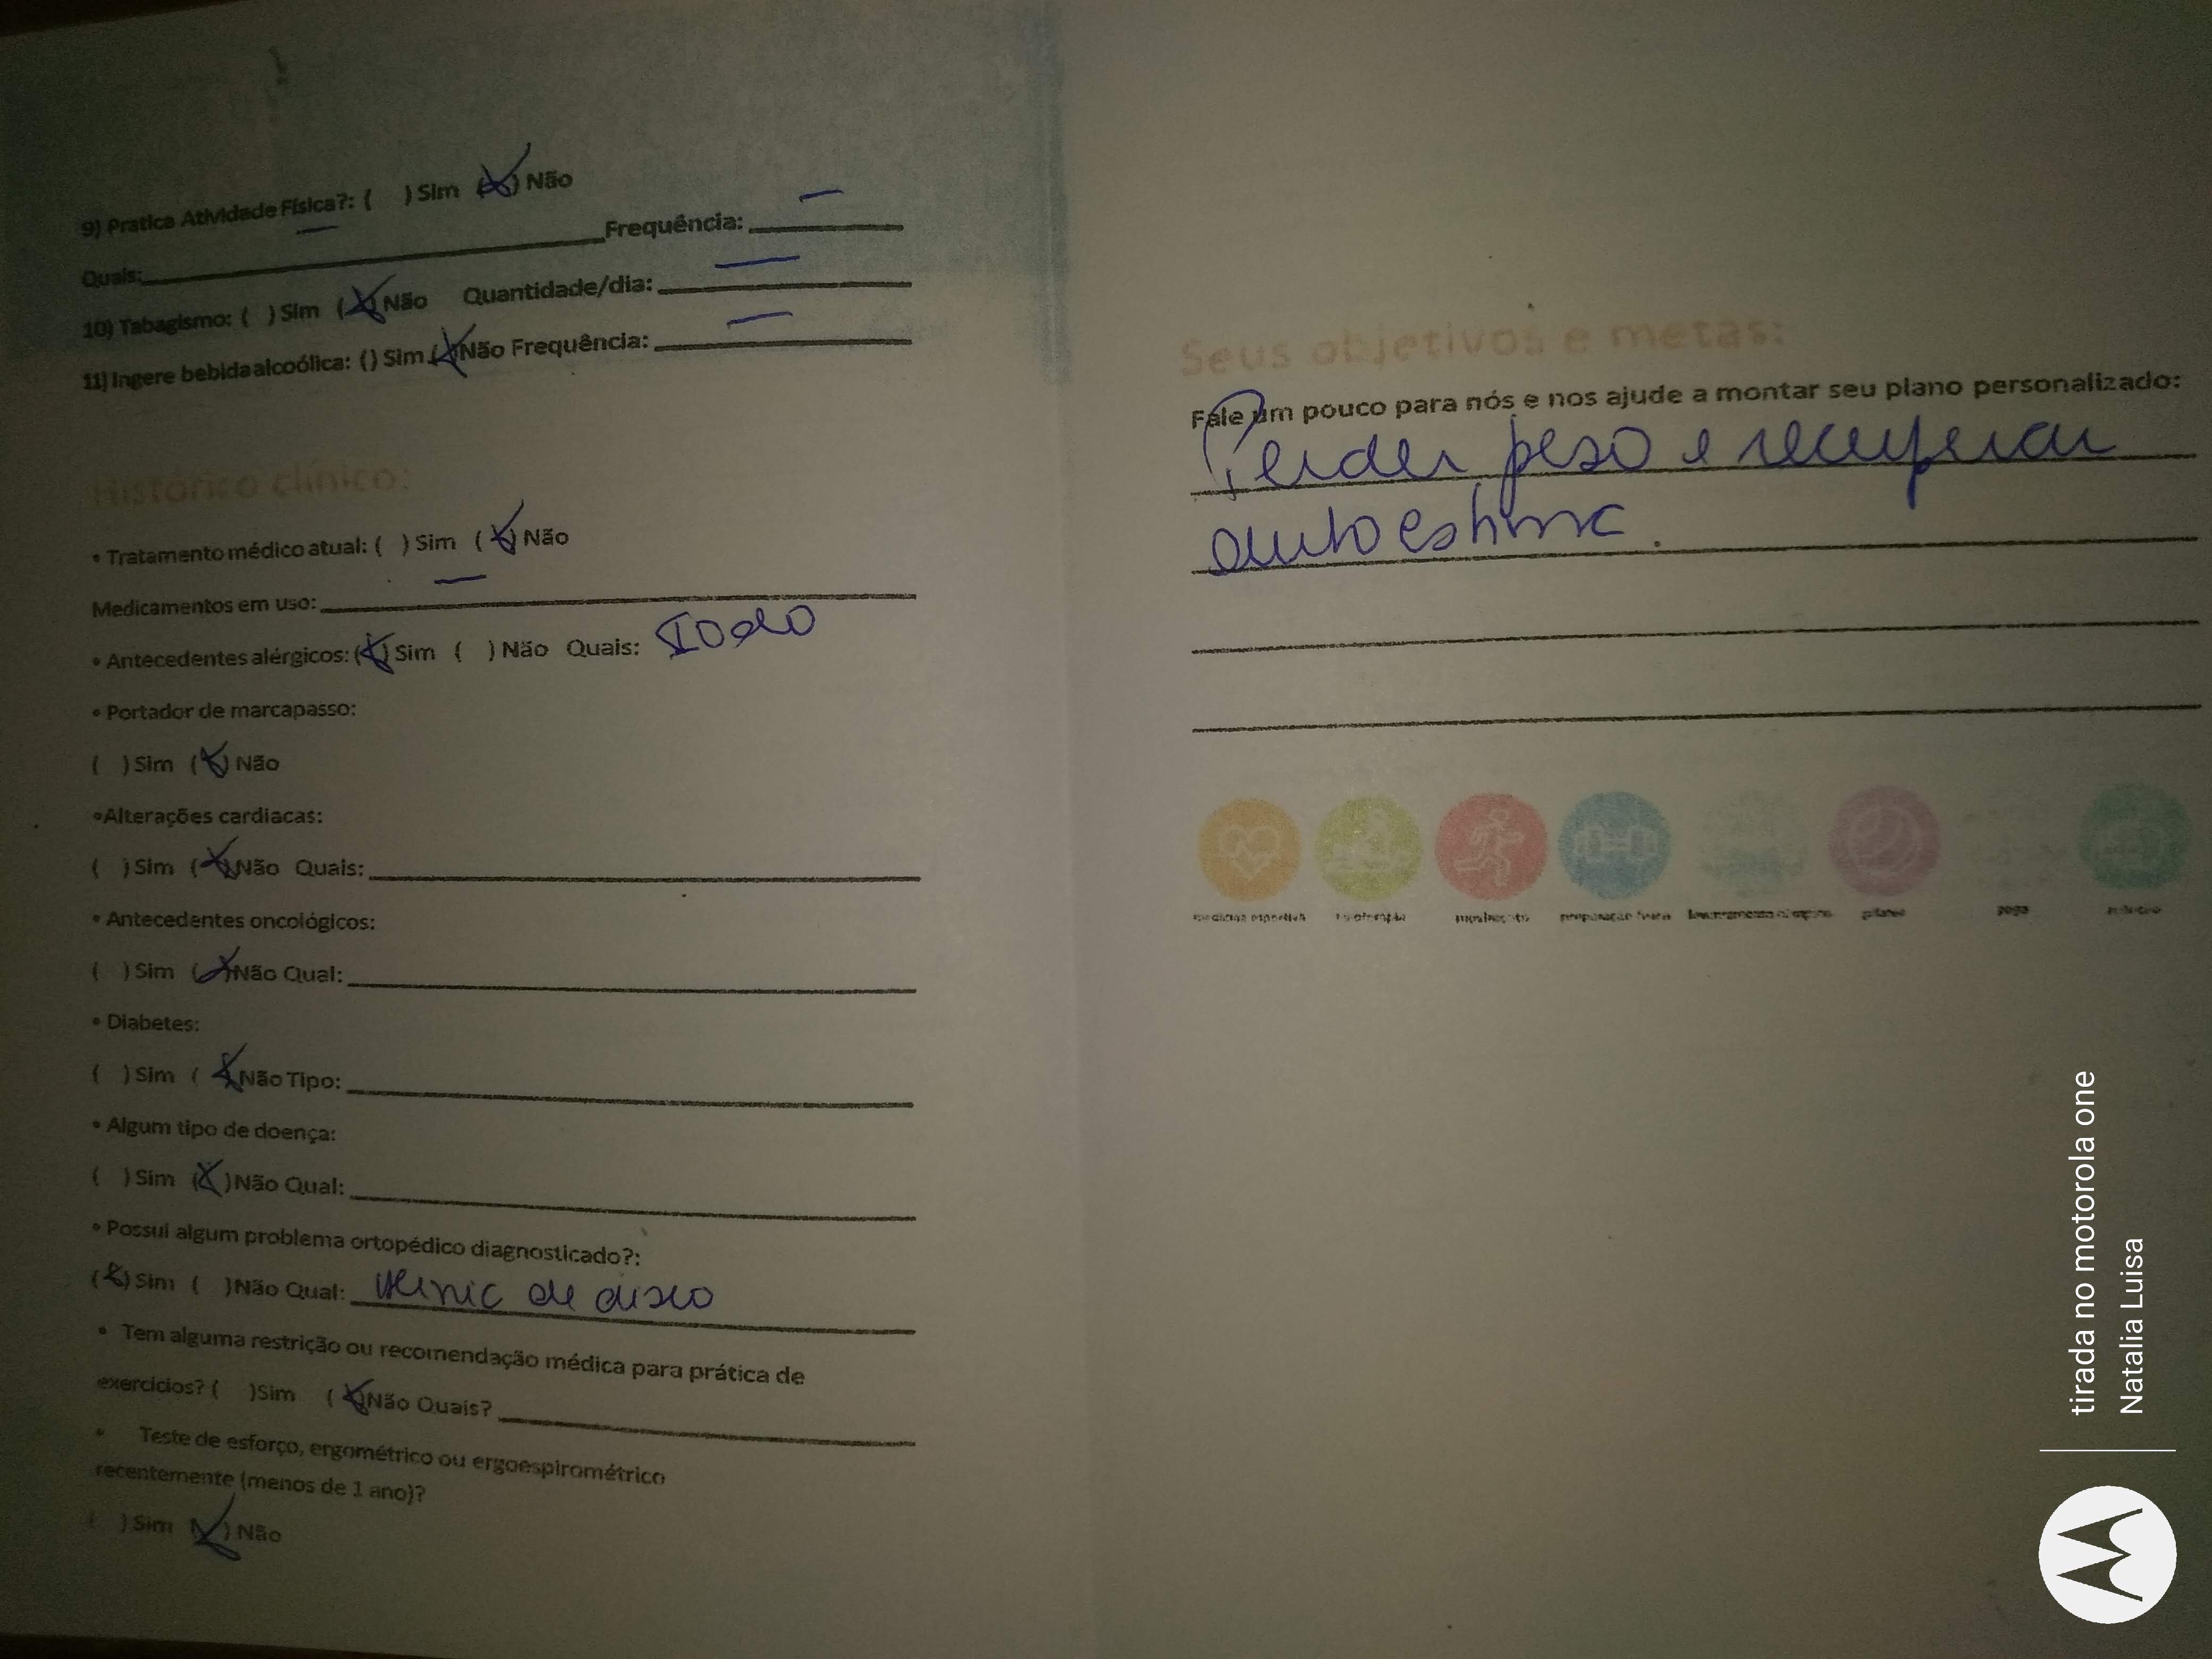 9) Pratica Atividade Física?: ( ) Sim (X) Não
Quais: ____ Frequência: ____
10) Tabagismo: ( ) Sim (X) Não Quantidade/dia: ____
11) Ingere bebida alcoólica: () Sim (X) Não Frequência: ____
Histórico clínico:
• Tratamento médico atual: ( ) Sim (X) Não
Medicamentos em uso: ____
• Antecedentes alérgicos: (X) Sim ( ) Não Quais: Iodo
• Portador de marcapasso:
( ) Sim (X) Não
• Alterações cardíacas:
( ) Sim (X) Não Quais: ____
• Antecedentes oncológicos:
( ) Sim (X) Não Qual: ____
• Diabetes:
( ) Sim (X) Não Tipo: ____
• Algum tipo de doença:
( ) Sim (X) Não Qual: ____
• Possui algum problema ortopédico diagnosticado?:
(X) Sim ( ) Não Qual: de disco
• Tem alguma restrição ou recomendação médica para prática de
exercícios? ( ) Sim (X) Não Quais? ____
• Teste de esforço, ergométrico ou ergoespirométrico
recentemente (menos de 1 ano)?
( ) Sim (X) Não
Seus objetivos e metas:
Fale um pouco para nós e nos ajude a montar seu plano personalizado:
Perder peso e recuperar
auto estima.
pilates
yoga
tirada no motorola one
Natalia Luisa